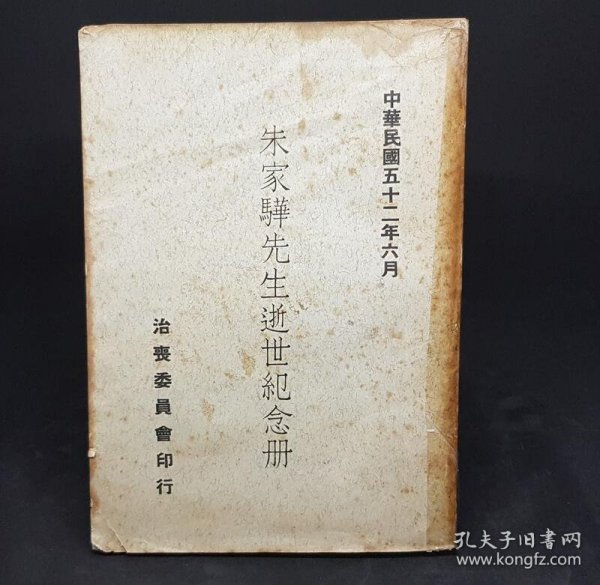 中華民國五十二年六月
朱家驊先生逝世紀念册
治喪委員會印行
孔夫子旧书网
www.kongfz.com